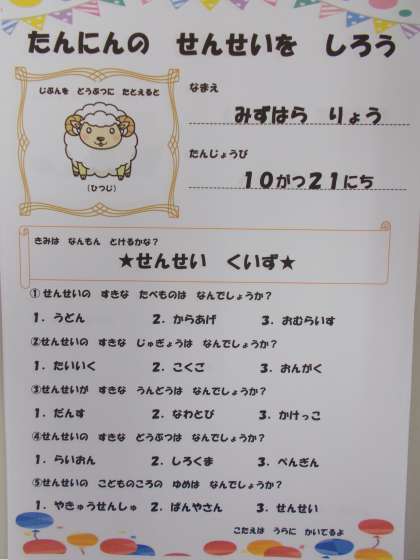 たんにんの せんせいを しろう
じぶんを どうぶつに たとえると
(ひつじ)
なまえ
みずはら りょう
たんじょうび
10がつ21にち
きみは なんもん とけるかな?
★せんせい くいず★
①せんせいの すきな たべものは なんでしょうか?
1. うどん 2. からあげ 3. おむらいす
②せんせいの すきな じゅぎょうは なんでしょうか?
1. たいいく 2. こくご 3. おんがく
③せんせいが すきな うんどうは なんでしょうか?
1. だんす 2. なわとび 3. かけっこ
④せんせいの すきな どうぶつは なんでしょうか?
1. らいおん 2. しろくま 3. ぺんぎん
⑤せんせいの こどものころの ゆめは なんでしょうか?
1. やきゅうせんしゅ 2. ぱんやさん 3. せんせい
こたえは うらに かいてるよ